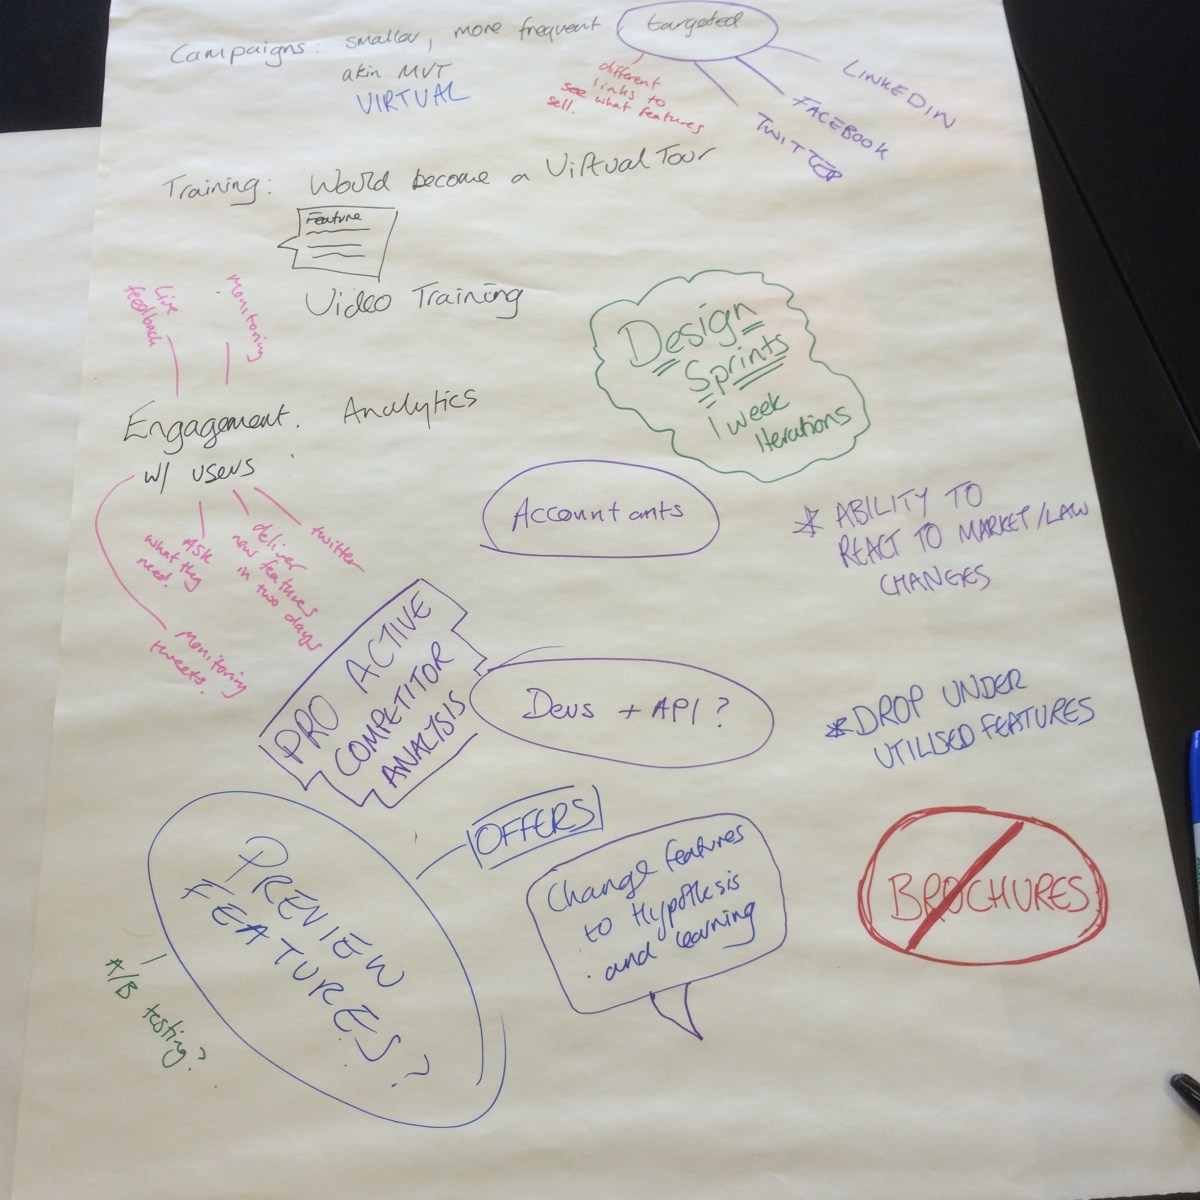 Campaigns: smaller, more frequent, targeted
akin MVT
VIRTUAL
different
links to
see what features
sell.
LINKEDIN
FACEBOOK
TWITTER
Training: Would become a Virtual Tour
Feature
Video Training
Live
feedback
Monitoring
Engagement. Analytics
w/ users
Ask
what they
need.
deliver
new features
in two days
twitter
Monitoring
tweets.
Design
Sprints
1 week
Iterations
Accountants
* ABILITY TO
REACT TO MARKET/LAW
CHANGES
PRO ACTIVE
COMPETITOR
ANALYSIS
Devs + API?
* DROP UNDER
UTILISED FEATURES
OFFERS
PREVIEW
FEATURES?
A/B testing?
Change features
to Hypothesis
and learning
BROCHURES